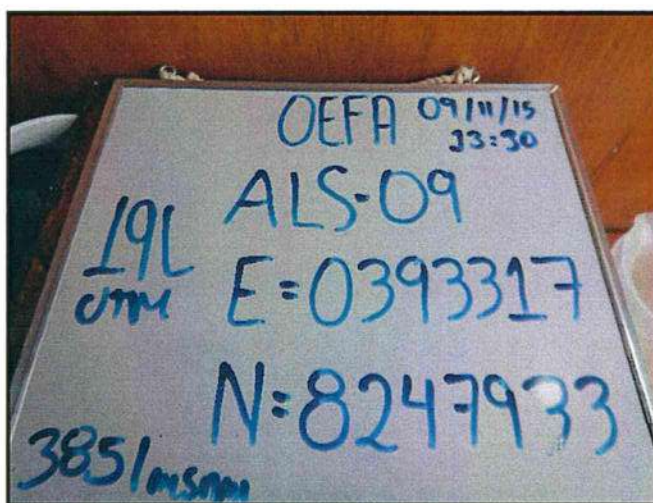 OEFA 09/11/15
13:30
ALS-09
19L
UTM
E=0393317
N=8247933
3851 msnm